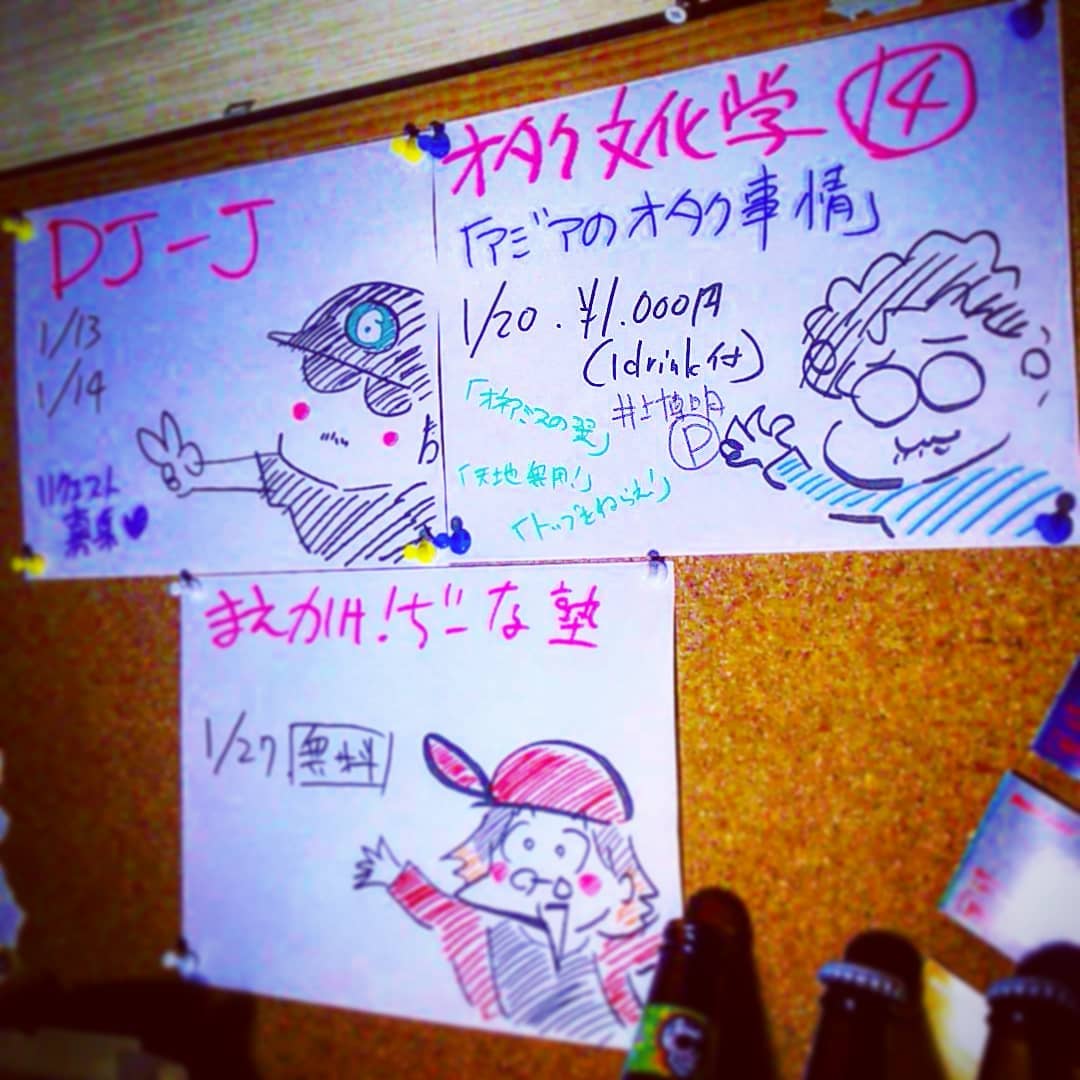 DJ-J
1/13
1/14
リクエスト
募集♥
6
オタク文化学 14
「アジアのオタク事情」
1/20. ¥1.000円
(1drink付)
「オネアミスの翼」
井上博明
P
「天地無用!」
「トップをねらえ!」
まえかけ!ぢーな塾
1/27 無料